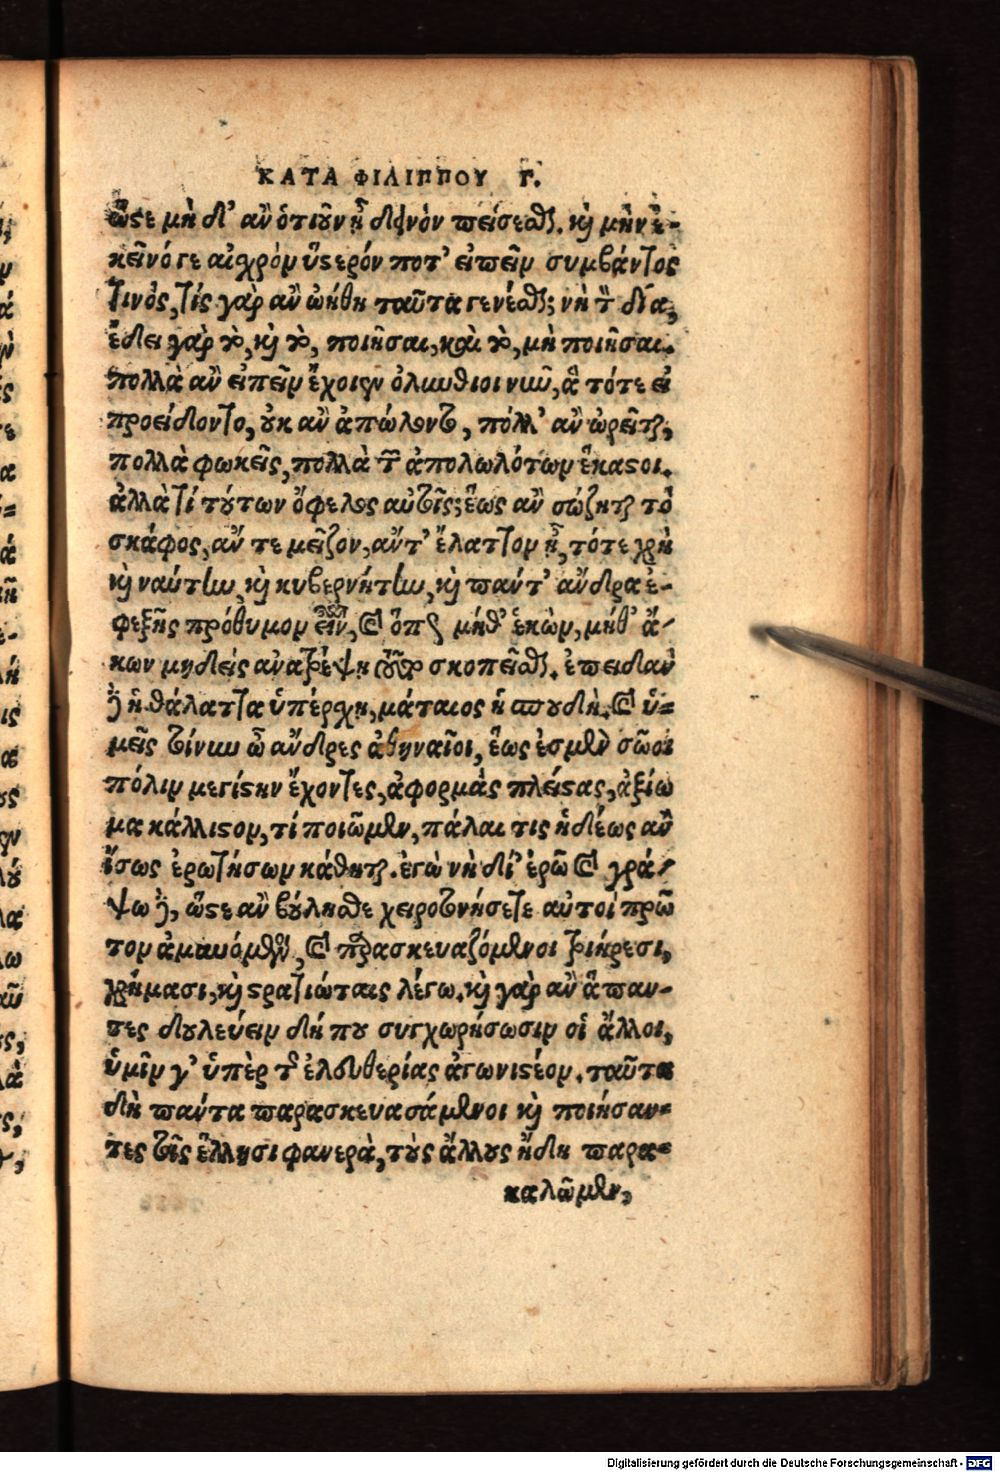 ΚΑΤΑ ΦΙΛΙΠΠΟΥ Γ.
ὥστε μὴ δι' ἂν ὁτιοῦν ᾖ δεινὸν πείσεσθαι. καὶ μὴν ἐ-
κεῖνό γε αἰσχρὸν ὕστερόν ποτ' εἰπεῖν συμβάντος
τινὸς, τίς γὰρ ἂν ᾠήθη ταῦτα γενέσθαι; νὴ τὸν δία,
ἔδει γὰρ τὸ, καὶ τὸ, ποιῆσαι, καὶ τὸ, μὴ ποιῆσαι.
πολλὰ ἂν εἰπεῖν ἔχοιεν ὀλύνθιοι νῦν, ἃ τότε εἰ
προείδοντο, οὐκ ἂν ἀπώλοντο, πόλλ' ἂν ὠρεῖται,
πολλὰ φωκεῖς, πολλὰ τῶν ἀπολωλότων ἕκαστοι.
ἀλλὰ τί τούτων ὄφελος αὐτοῖς; ἕως ἂν σώζηται τὸ
σκάφος, ἄν τε μεῖζον, ἄν τ' ἔλαττον ᾖ, τότε χρὴ
καὶ ναύτην, καὶ κυβερνήτην, καὶ πάντ' ἄνδρα ἐ-
φεξῆς πρόθυμον εἶναι, καὶ ὅπως μήθ' ἑκὼν, μήθ' ἄ-
κων μηδεὶς ἀνατρέψῃ τοῦτο σκοπεῖσθαι. ἐπειδὰν
δὲ ἡ θάλαττα ὑπέρσχῃ, μάταιος ἡ σπουδή. καὶ ὑ-
μεῖς τοίνυν ὦ ἄνδρες ἀθηναῖοι, ἕως ἐσμὲν σῶοι
πόλιν μεγίστην ἔχοντες, ἀφορμὰς πλείστας, ἀξίω
μα κάλλιστον, τί ποιῶμεν, πάλαι τις ἡδέως ἂν
ἴσως ἐρωτήσων κάθηται. ἐγὼ νὴ δί' ἐρῶ καὶ γρά-
ψω δὲ, ὥστε ἂν βούλησθε χειροτονήσετε αὐτοὶ πρῶ
τον ἀμυνόμενοι, καὶ παρασκευαζόμενοι τριήρεσι,
χρήμασι, καὶ στρατιώταις λέγω. καὶ γὰρ ἂν ἅπαν-
τες δουλεύειν δή που συγχωρήσωσιν οἱ ἄλλοι,
ὑμῖν γ' ὑπὲρ τῆς ἐλευθερίας ἀγωνιστέον. ταῦτα
δὴ πάντα παρασκευασάμενοι καὶ ποιήσαν-
τες τοῖς ἕλλησι φανερὰ, τοὺς ἄλλους ἤδη παρα-
καλῶμεν,
Digitalisierung gefördert durch die Deutsche Forschungsgemeinschaft - DFG